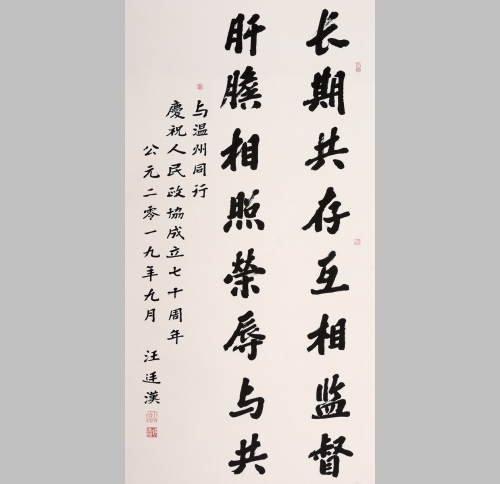 长期共存互相监督
肝膽相照荣辱与共
与温州同行
慶祝人民政協成立七十周年
公元二零一九年九月
汪廷漢